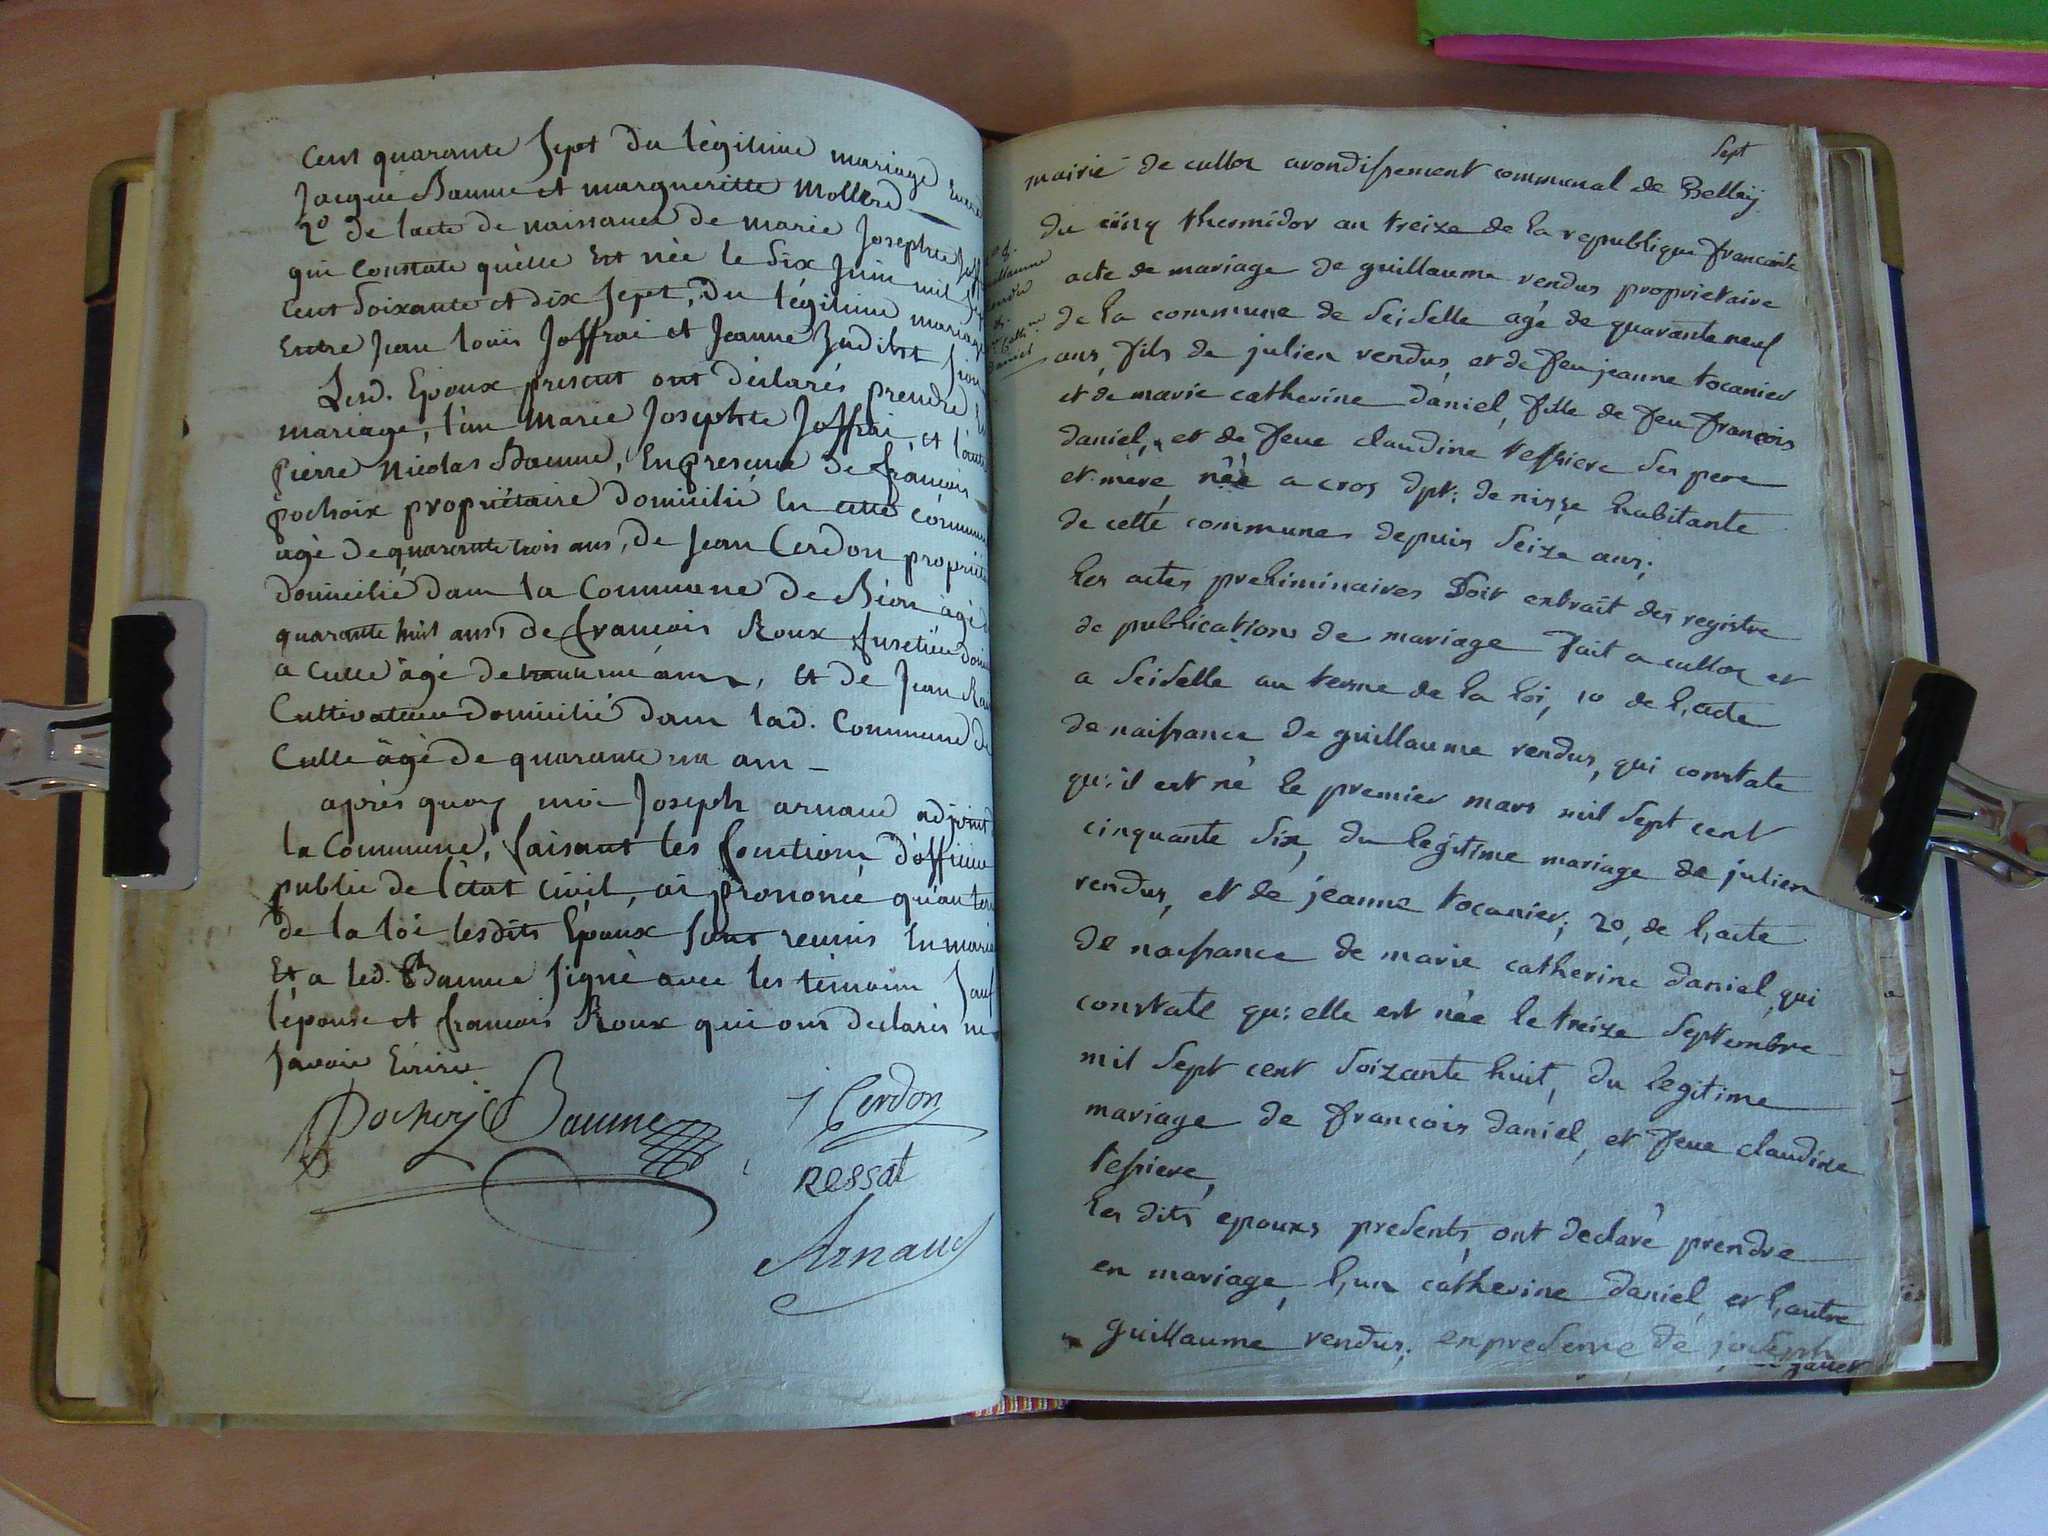 Cent quarante Sept du légitime mariage Entre
Jacque Baume et margueritte Mollerd
2º de lacte de naissance de marie Josephte
qui Constate quèlle Est née le Six Juin mil
Cent Soixante et dix Sept, du légitime mariage
Entre Jean louïs Joffrai et Jeanne Judiht
Lesd. Epoux present ont déclarés prendre
mariage, l'un Marie Josephte Joffrai, et l'autre
pierre Nicolas Baume, En presence de francois
pochoix propriétaire domicilié En cette commune
agé de quarante trois ans, de Jean Cerdon
domicilié dans la Commune de Béon agé
quarante huit ans, de francois Roux
a Culle âgé de ans, et de Jean
Cultivateur domicilié dans lad. Commune de
Culle âgé de quarante un ans
après quoy moi Joseph arnaud adjoint
la Commune, faisant les fonctions d'officier
public de l'état civil, ai prononcé qu'au
de la loi lesdits Epoux sont reunis En
Et a led. Baume signé avec les témoins Sauf
l'épouse et francois Roux qui ont déclarés ne
Savoir Ecrire
Pochoy Baume J Cerdon
Ressat
Arnaud
Sept
mairie de culloz arondissement communal de Belley
du cinq thermidor an treize de la republique francaise
acte de mariage de guillaume rendus proprietaire
de la commune de Seiselle agé de quarante neuf
ans, fils de julien rendus, et de feu jeanne tocanier
et de marie catherine daniel, fille de feu françois
daniel, et de feue claudine tessiere ses pere
et mere née a cros dpt: de nisse habitante
de cette commune depuis seize ans;
les actes preliminaires Soit extrait des registre
de publications de mariage fait a culloz et
a Seiselle au terme de la loi, 1o de l,acte
de naissance de guillaume rendus, qui constate
qu:il est né le premier mars mil sept cent
cinquante six, du legitime mariage de julien
rendus, et de jeanne tocanier; 2o, de l,acte
de naissance de marie catherine daniel, qui
constate qu:elle est née le treize septembre
mil sept cent soizante huit, du legitime
mariage de francois daniel, et feue claudine
tessiere,
les dits epouxs presents, ont declaré prendre
en mariage, l,un catherine daniel, et l,autre
guillaume rendus; en presence de joseph